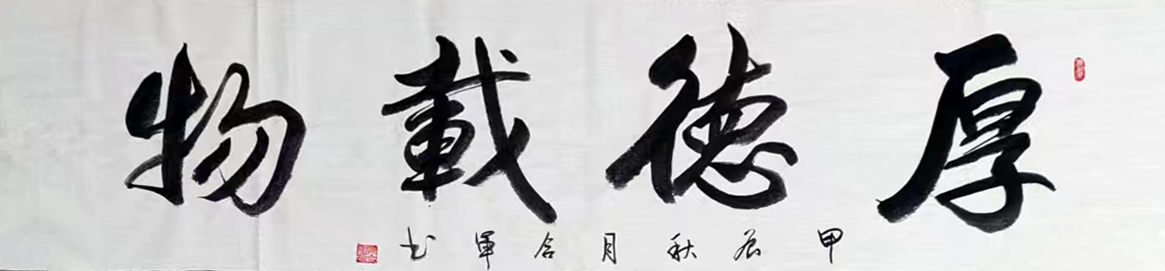 厚德載物
甲辰秋月合軍书